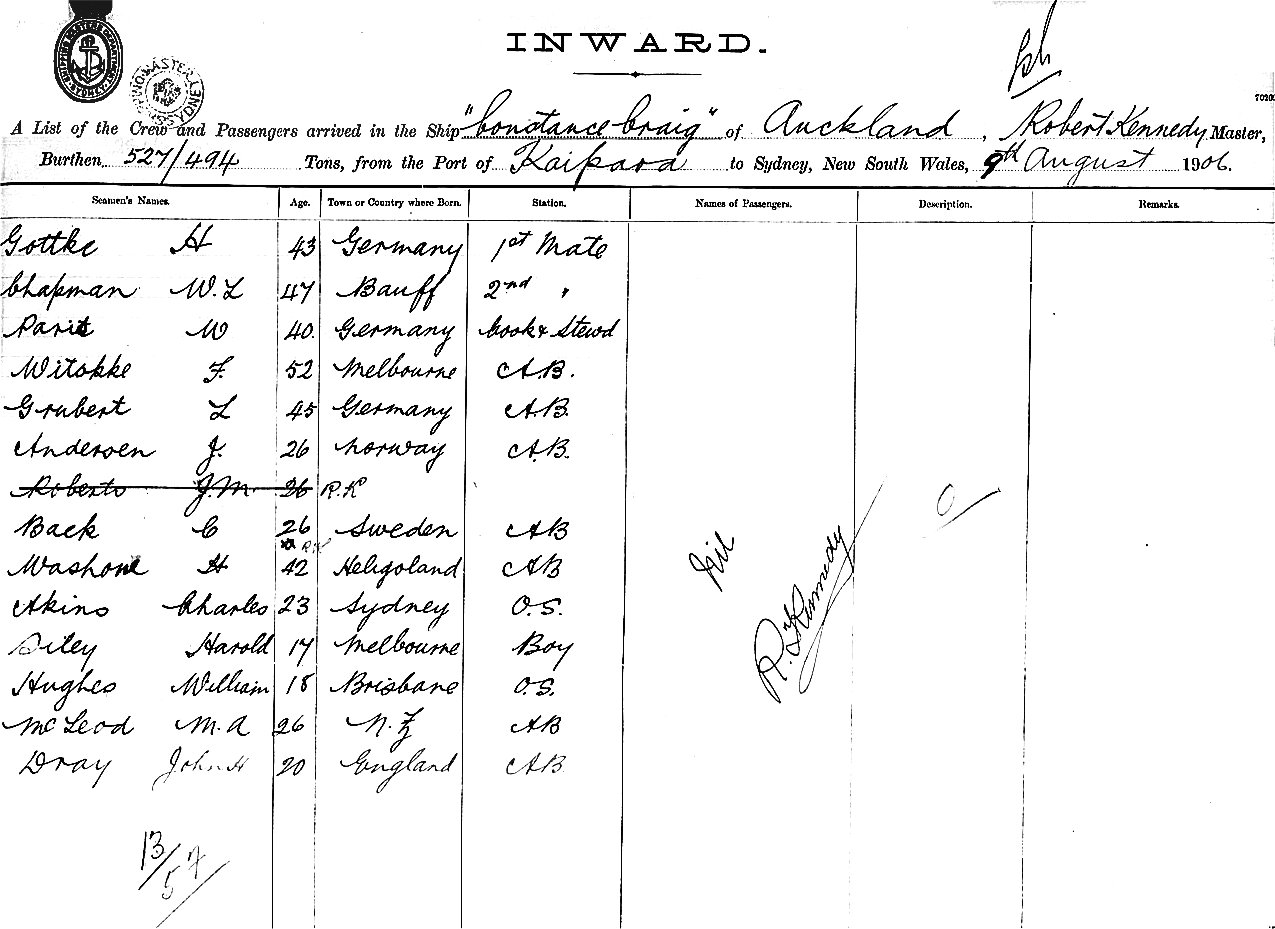 INWARD.
A List of the Crew and Passengers arrived in the Ship "Constance Craig" of Auckland, Robert Kennedy Master,
Burthen 527/494 Tons, from the Port of Kaipara to Sydney, New South Wales, 9th August 1906.
Seamen's Names. Age. Town or Country where Born. Station. Names of Passengers. Description. Remarks.
Gottke H 43 Germany 1st Mate
Chapman W.L 47 Banff 2nd "
Parit W 40. Germany Cook & Stewd
Witokke F. 52 Melbourne A.B.
Grubert L 45 Germany A.B.
Andersen J. 26 Norway A.B.
Roberts J.M. 26 R.K
Back C 26 Sweden AB
Washone H 42 Heligoland AB
Akins Charles 23 Sydney O.S.
Siley Harold 17 Melbourne Boy
Hughes William 18 Brisbane O.S.
McLeod M.A 26 N.Z AB
Dray John H 20 England AB
Nil
R. Kennedy
13/57